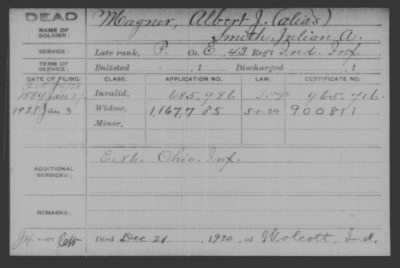 DEAD
NAME OF SOLDIER:
Wagner, Albert J. (alias)
Smith, Julian A.
SERVICE:
Late rank, P. Co. E, 43 Reg't Ind. Inf.
TERM OF SERVICE:
Enlisted , 1 Discharged , 1
DATE OF FILING. CLASS. APPLICATION NO. LAW. CERTIFICATE NO.
1889 Jan Invalid, 685,986 965,716
1921 Jan 3 Widow, 1,167,785 900811
Minor,
ADDITIONAL SERVICES:
E. 86 Ohio Inf.
REMARKS:
Died Dec 21, 1920, at Wolcott, Ind.